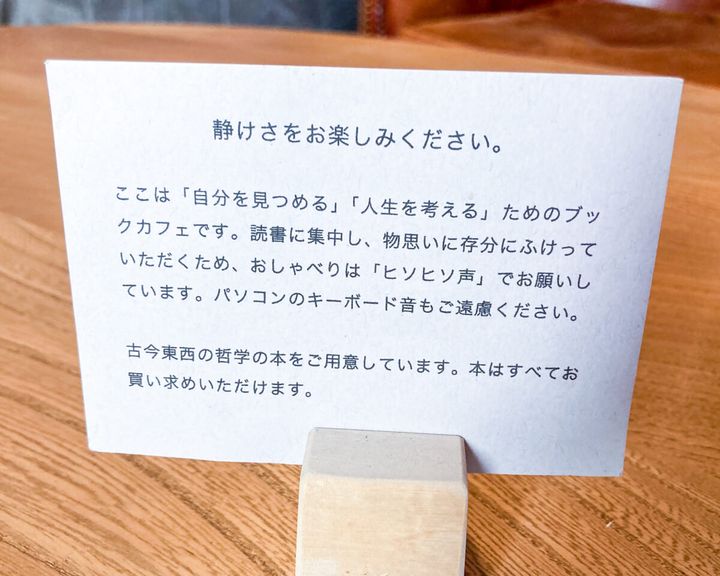 静けさをお楽しみください。
ここは「自分を見つめる」「人生を考える」ためのブッ
クカフェです。読書に集中し、物思いに存分にふけって
いただくため、おしゃべりは「ヒソヒソ声」でお願いし
ています。パソコンのキーボード音もご遠慮ください。
古今東西の哲学の本をご用意しています。本はすべてお
買い求めいただけます。